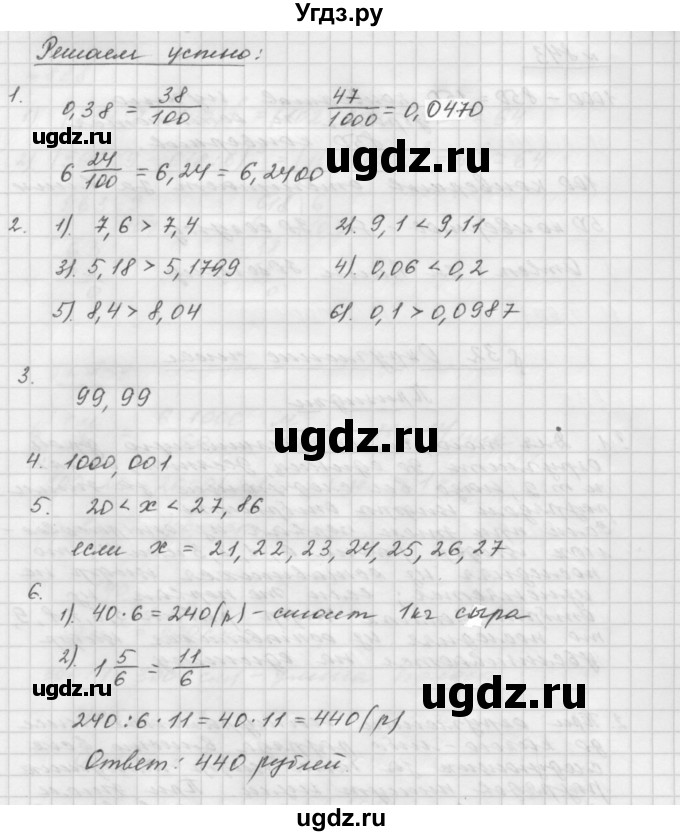 Угдз.ру
Решаем устно:
1. 0,38 = 38/100    47/1000 = 0,0470
ugdz.ru ugdz.ru
6 24/100 = 6,24 = 6,2400
2. 1). 7,6 > 7,4    2). 9,1 < 9,11
3). 5,18 > 5,1799    4). 0,06 < 0,2
5). 8,4 > 8,04    6). 0,1 > 0,0987
ugdz.ru
3. 99,99
ugdz.ru
4. 1000,001
5. 20 < x < 27,86
если x = 21, 22, 23, 24, 25, 26, 27
6.
1). 40·6 = 240(р) – стоит 1кг сыра
ugdz.ru
2). 1 5/6 = 11/6
ugdz.ru ugdz.ru
240:6·11 = 40·11 = 440(р)
Ответ: 440 рублей.
ugdz.ru